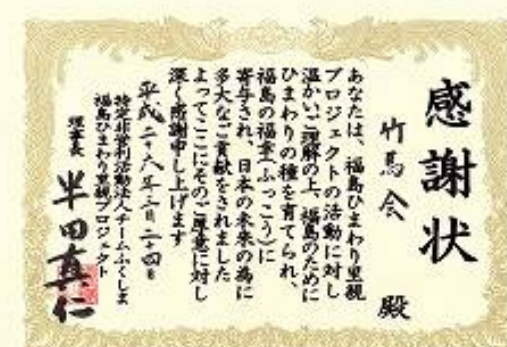 感謝状
竹馬会 殿
あなたは、福島ひまわり里親
プロジェクトの活動に対し
温かいご理解の上、福島のために
ひまわりの種を育てられ、
福島の福幸(ふっこう)に
寄与され、日本の未来の為に
多大なご貢献をされました
よってここにそのご厚意に対し
深く感謝申し上げます
平成二十六年三月二十四日
特定非営利活動法人チームふくしま
福島ひまわり里親プロジェクト
理事長 半田真仁